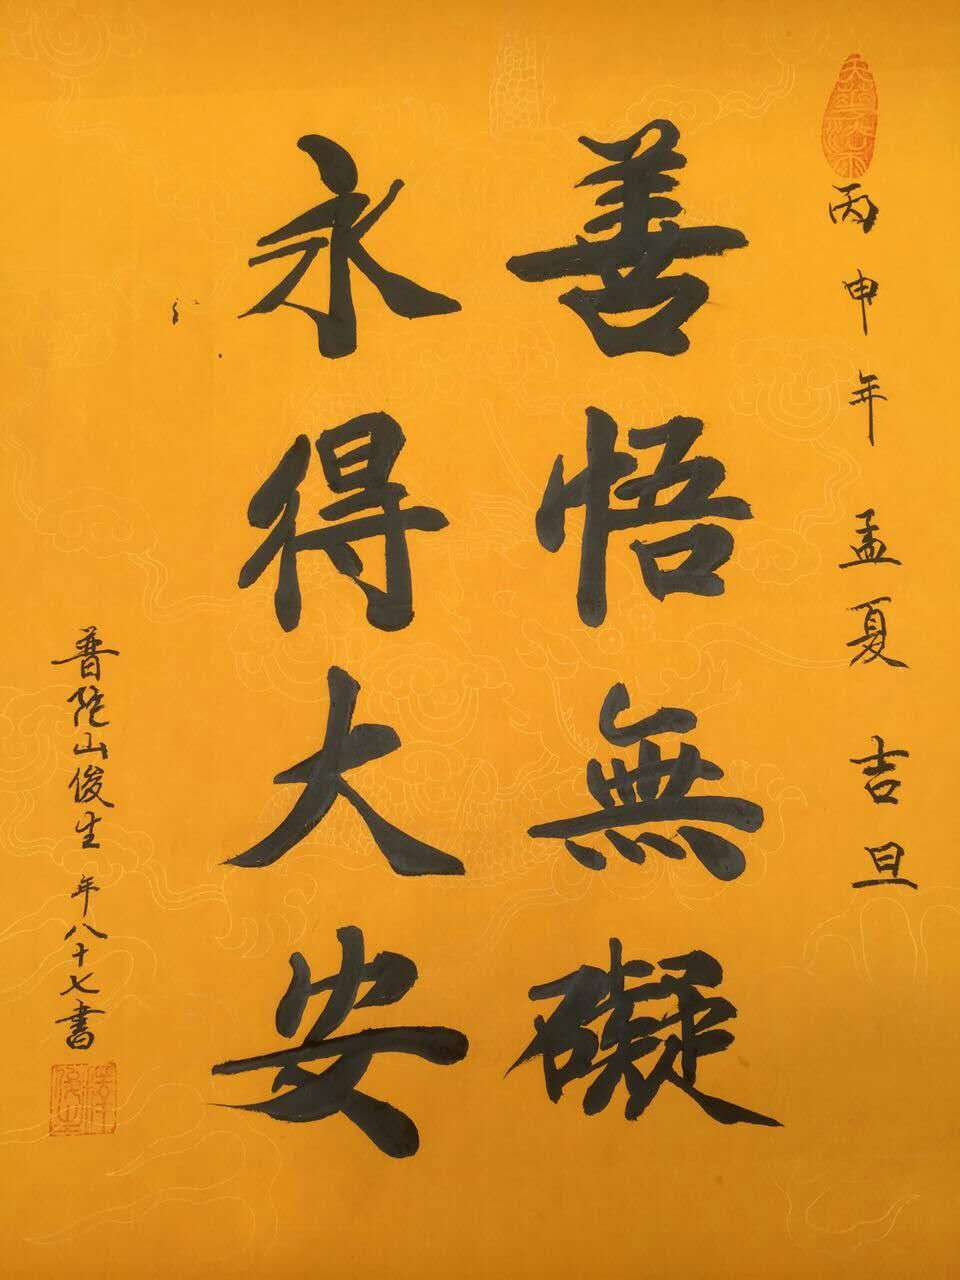 丙申年孟夏吉旦
善悟無礙
永得大安
普陀山俊生年八十七書